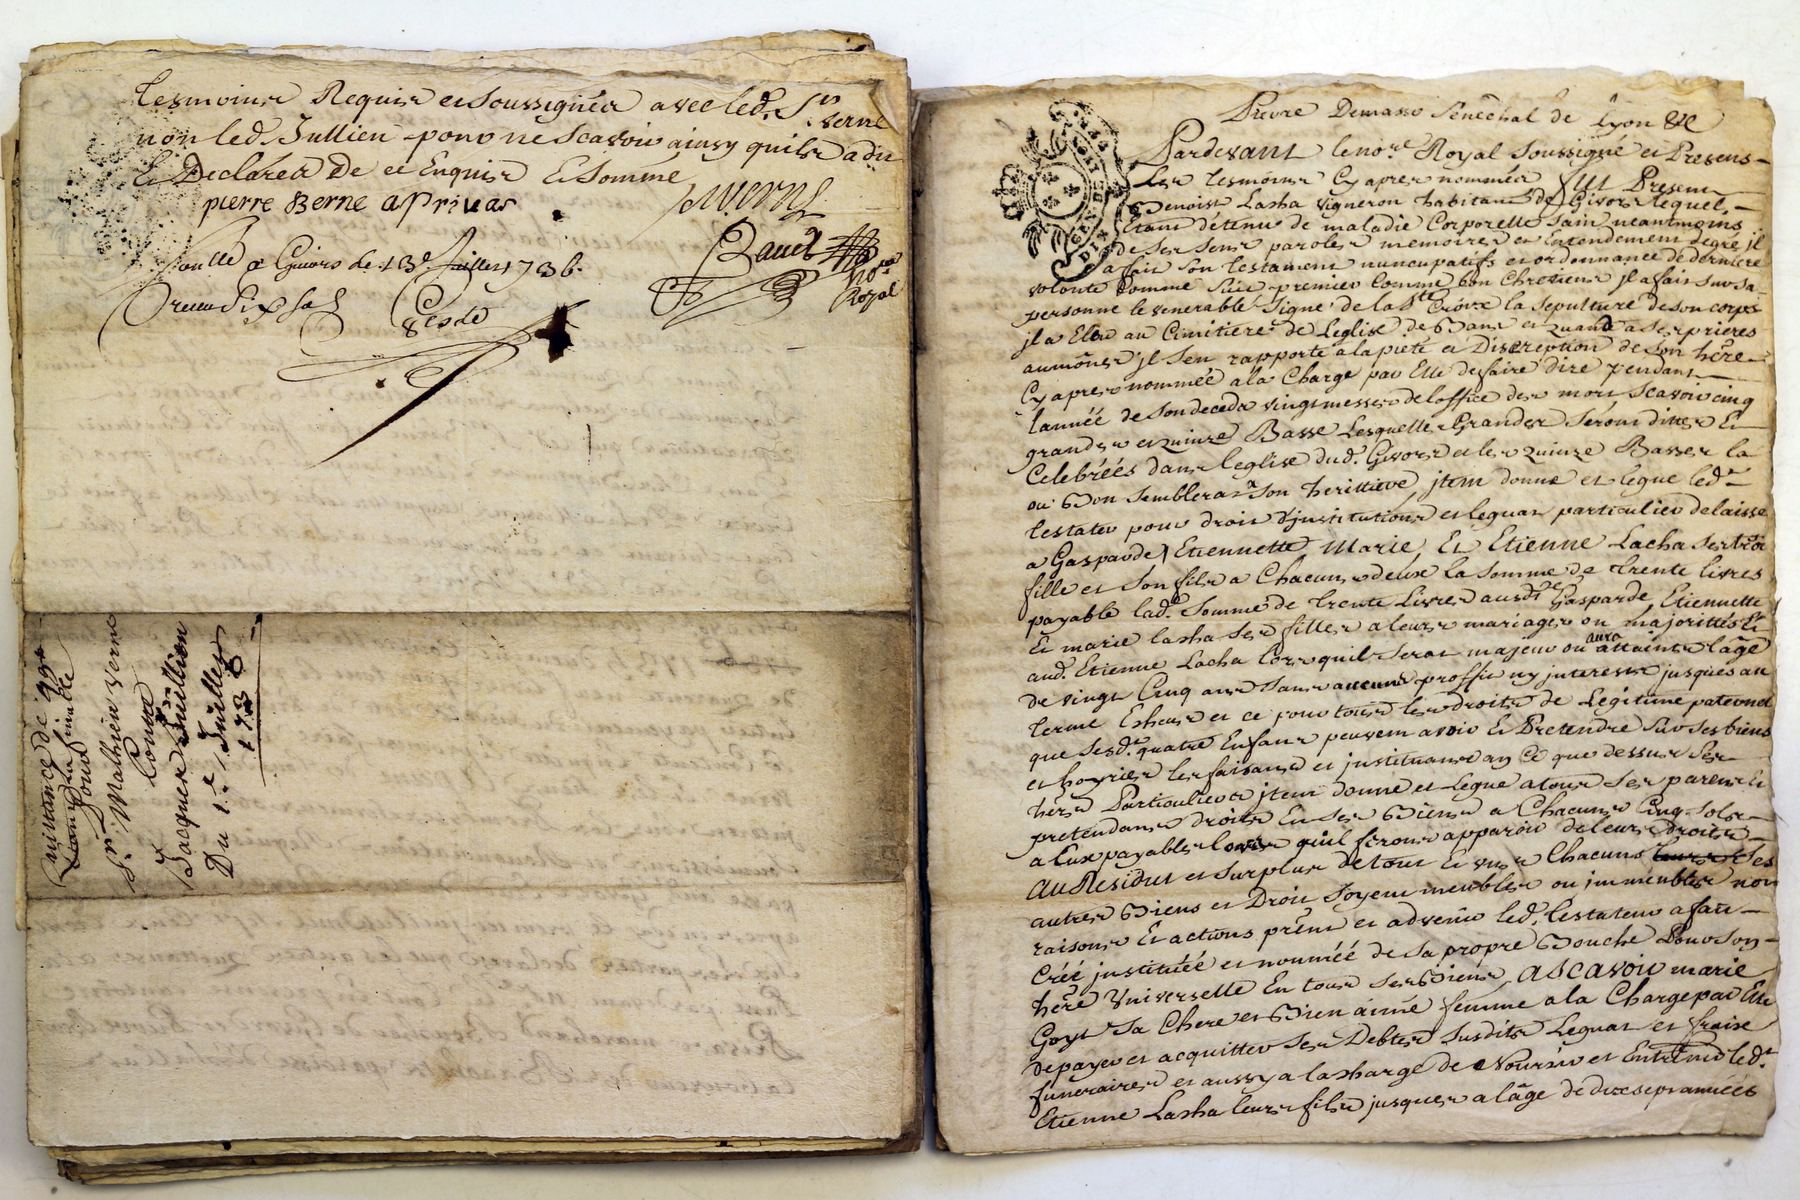 tesmoins Requis et soussignés avec led. Sr. verne
non led. Jullien pour ne scavoir ainsy quils a dit
Et Declaréa De ce Enquis Et sommé
pierre Berne aprivas
J verne
Bauet
Royal
a Givors le 13e Juillet 1736.
Receu six sols
Quittance de
pour
Sr. Mathieu verne
Contre
Jacques Juillien
Du 1er Juillet
1736
Pierre Demasso Senechal de Lyon &c
Pardevant le nore. Royal soussigné et Presens
Les tesmoins Cy apres nommés fut Present
Benoist Lacha vigneron habitant de Givors lequel
Etant détenu de maladie Corporelle sain neantmoins
de ses sens parole memoire et Entendement degré jl
a fait son testament nuncupatifs et ordonnance de derniere
volonté Comme suit premier Comme bon Chretien jl a fait sur sa
personne le venerable signe de la Ste Croix la sepulture de son corps
jl a Eleu au Cimitiere de Leglise de Bans et quand a ses prieres
aumônes jl sen rapporte a la pieté et Discretion de son hére
Cy apres nommée a la Charge par Elle de faire dire pendant
lannéé de son decedz vingt messes de loffice des mors scavoir cinq
grandes et quinze Basse Lesquelle Grandes seront dittes Et
Celebréés dans leglise dud. Givors et les quinze Basses la
ou Bon semblera a son herittiere, jtem donne et legue led.
testateur pour droit djnstitutions et leguat particulier delaisse
a Gasparde, Etiennette, Marie, Et Etienne Lacha ses trois
fille et son fils a Chacuns deux la somme de trente livres
payable lad. somme de trente Livres ausd. Gasparde, Etiennette
Et marie lacha ses filles a leurs mariages ou majorittés Et
aud. Etienne Lacha lors quil serat majeur ou aura attaint lâge
de vingt Cinq ans sans aucuns proffit ny jnterest jusques au
terme Escheus et ce pour tous les droits de Légitime paternel
que sesd. quatre Enfans peuvent avoir Et Pretendre sur ses biens
et hoyries les faisans et jnstituans an Ce que dessus ses
hérs Particuliers jtem donne et Legue a tous ses parens Et
pretendans droits En ses Biens a Chacuns Cinq sols
a Eux payables lors quil feront apparoir de leurs droits
Au Residus et surplus de tout Et uns Chacuns ses
autres Biens et Droit soyent meubles ou jmmeubles nom
raisons Et actions prént et advenir led. testateur a fait
Créé jnstituéé et nommée de sa propre Bouche Pour son
hére Universelle En tous ses Biens, ascavoir marie
Goyt sa Chere et Bien aimé femme a la Charge par Elle
de payer et acquitter ses Debtes susdits Leguat et fraix
funeraires et aussy a la charge de Nourir et Entrenir led.
Etienne Lacha leurs fils jusques a lâge de dixsept années
DIX DEN
GEN DE LYON